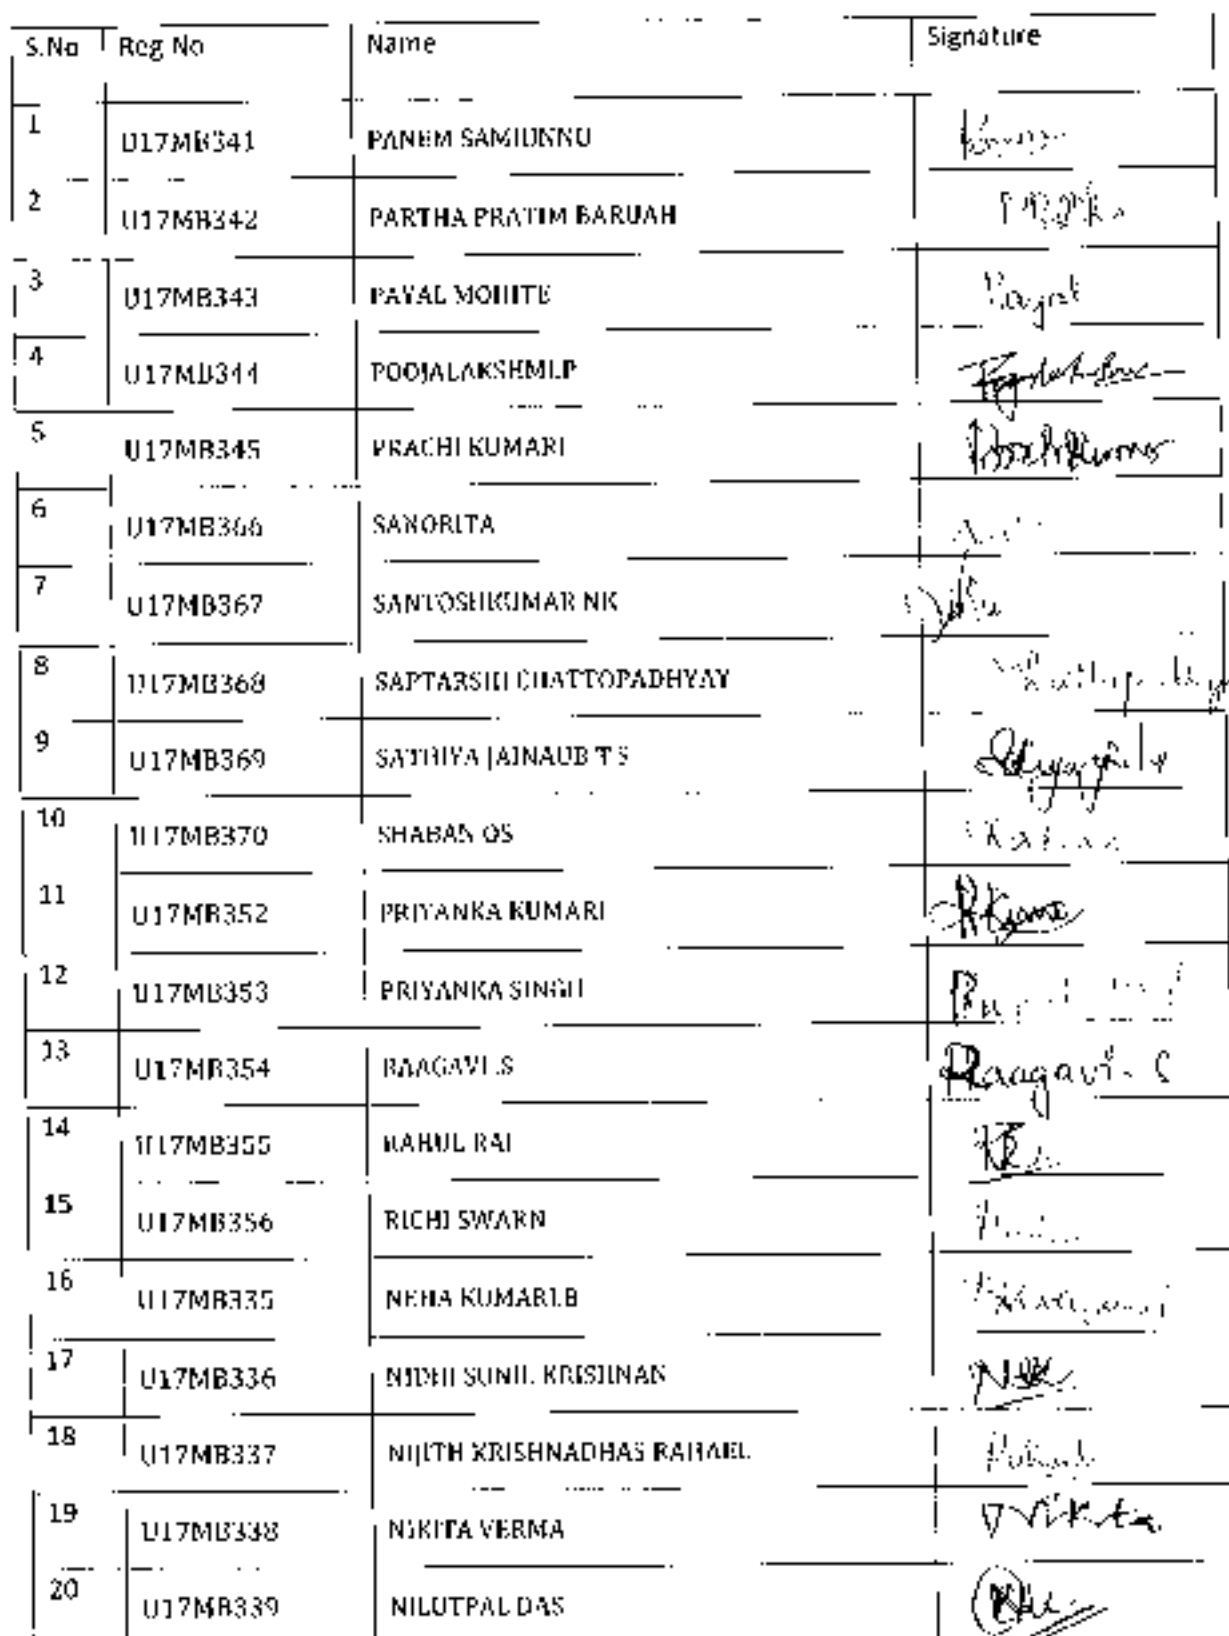 S.No Reg No Name Signature
1 U17MB341 PANEM SAMIUNNU
2 U17MB342 PARTHA PRATIM BARUAH
3 U17MB343 PAYAL MOHITE Payal
4 U17MB344 POOJALAKSHMI.P
5 U17MB345 PRACHI KUMARI
6 U17MB366 SANORITA
7 U17MB367 SANTOSHKUMAR NK
8 U17MB368 SAPTARSHI CHATTOPADHYAY
9 U17MB369 SATHIYA JAINAUB T S
10 U17MB370 SHABAN OS
11 U17MB352 PRIYANKA KUMARI
12 U17MB353 PRIYANKA SINGH
13 U17MB354 RAAGAVI.S Raagavi. S
14 U17MB355 RAHUL RAI
15 U17MB356 RICHI SWARN
16 U17MB335 NEHA KUMARI.B
17 U17MB336 NIDHI SUNIL KRISHNAN
18 U17MB337 NIJITH KRISHNADHAS RAHAEL
19 U17MB338 NIKITA VERMA Nikita
20 U17MB339 NILUTPAL DAS